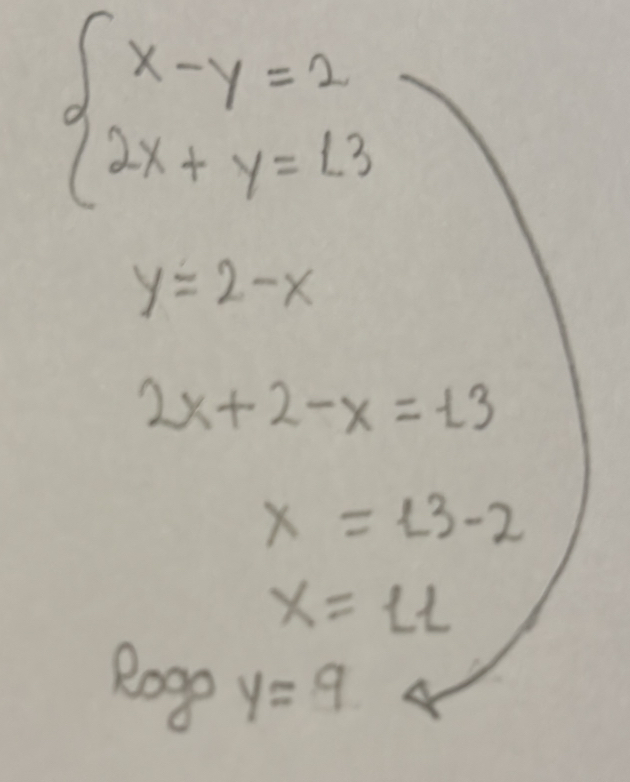 x - y = 2
2x + y = 13
y = 2 - x
2x + 2 - x = 13
x = 13 - 2
x = 11
Logo y = 9